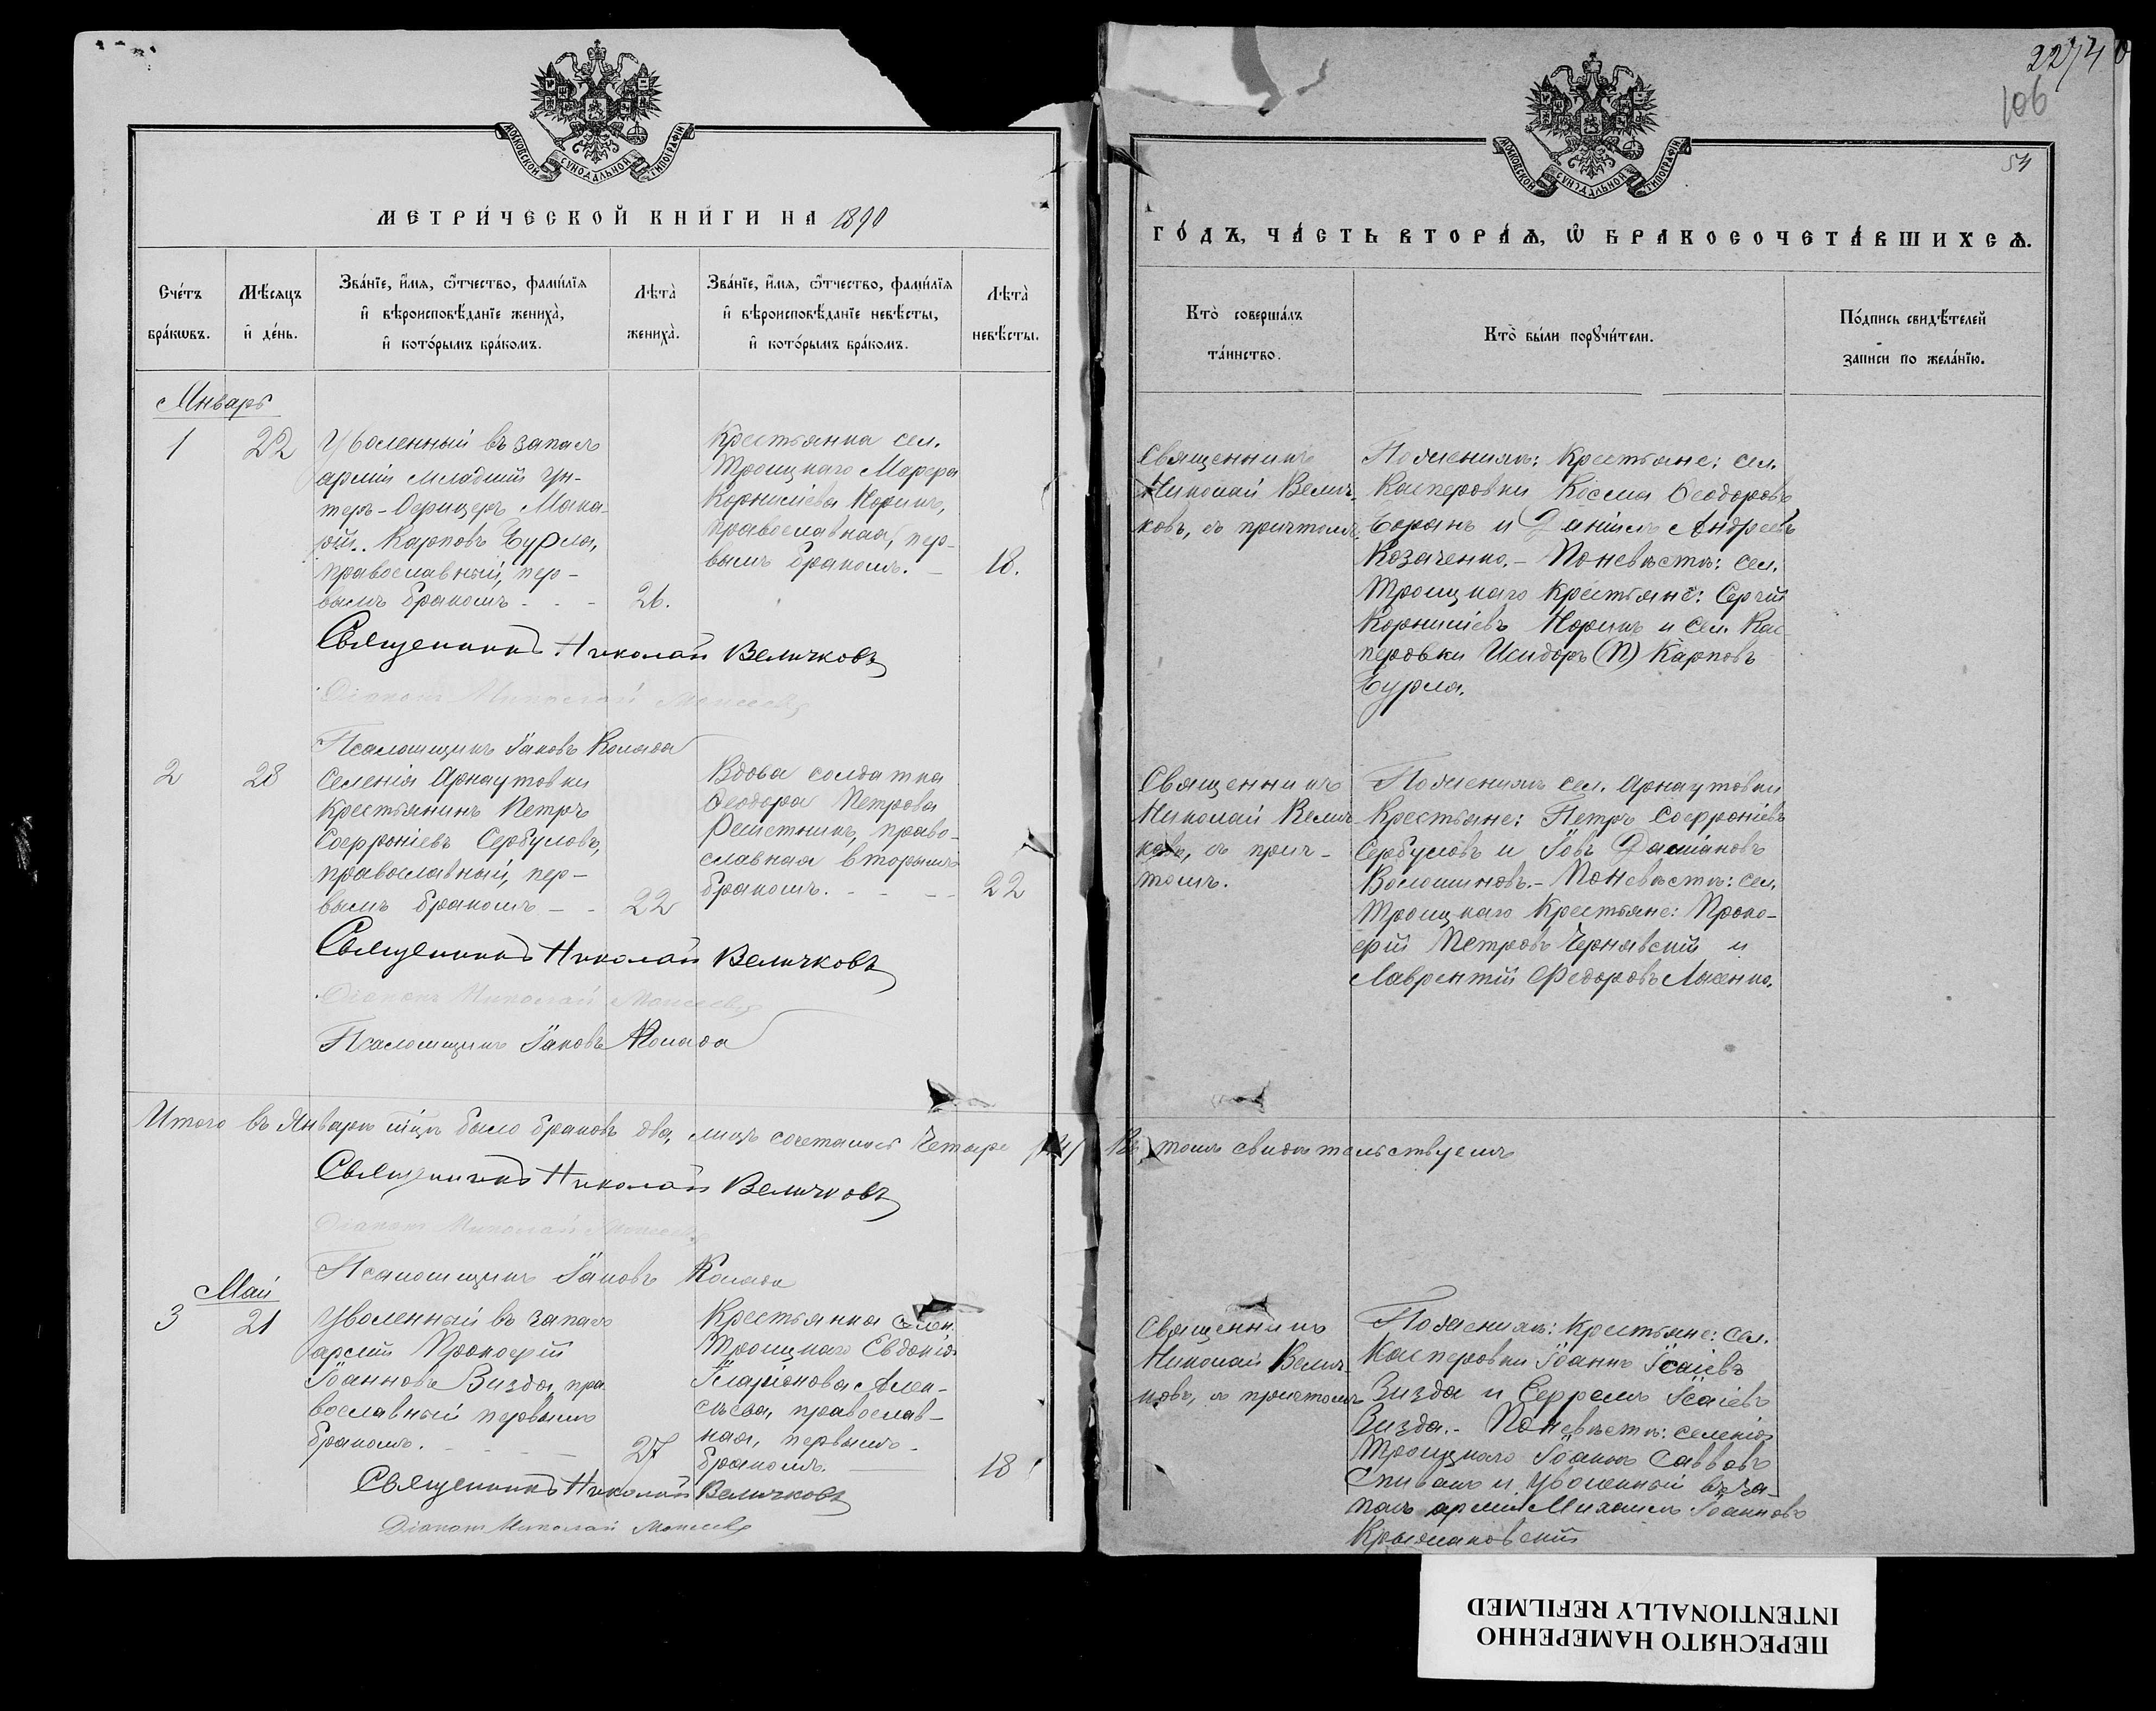 МОСКОВСКОЙ СУНОДАЛЬНОЙ ТИПОГРАФІИ
МЕТРИ́ЧЕСКОЙ КНИ́ГИ НА 1890
Сче́тъ бра́кѡвъ.
Мѣ́сяцъ и҆ де́нь.
Зва́нїе, и҆́мя, ѻ҆́тчество, фами́лїя и҆ вѣроисповѣ́данїе жениха̀, и҆ кото́рымъ бра́комъ.
Лѣта̀ жениха̀.
Зва́нїе, и҆́мя, ѻ҆́тчество, фами́лїя и҆ вѣроисповѣ́данїе невѣ́сты, и҆ кото́рымъ бра́комъ.
Лѣта̀ невѣ́сты.
Январь
1
22
Уволенный въ запасъ
арміи младшій ун-
теръ-Офицеръ Мака-
рій Карповъ Бурла,
православный, пер-
вымъ бракомъ - -
26.
Крестьянка сел.
Троицкаго Марфа
Корниліева Норикъ,
православная, пер-
вымъ бракомъ. -
18.
Священникъ Николай Величковъ
Діаконъ Николай Моисеевъ
Псаломщикъ Іаковъ Колада
2
28
Селенія Арнаутовки
Крестьянинъ Петръ
Софроніевъ Сербуловъ,
православный, пер-
вымъ бракомъ - -
22
Вдова солдатка
Ѳеодора Петрова
Решетникъ, право-
славная вторымъ
бракомъ. - - -
22
Священникъ Николай Величковъ
Діаконъ Николай Моисеевъ
Псаломщикъ Іаковъ Колада
Итого въ Январѣ м-цѣ было браковъ два, лицъ сочеталось четыре /4/
Священникъ Николай Величковъ
Діаконъ Николай Моисеевъ
Псаломщикъ Іаковъ Колада
Май
3
21
Уволенный въ запасъ
арміи Прокофій
Іоанновъ Визда, пра
вославный первымъ
бракомъ. - - -
27
Крестьянка селен.
Троицкаго Евдокія
Иларіонова Алек-
сѣева, православ-
ная, первымъ -
бракомъ. -
18
Священникъ Николай Величковъ
Діаконъ Николай Моисеевъ
2274
106
54
МОСКОВСКОЙ СУНОДАЛЬНОЙ ТИПОГРАФІИ
ГО́ДЪ, ЧА́СТЬ ВТОРА́Ѧ, Ѡ҆ БРАКОСОЧЕТА́ВШИХСѦ.
Кто̀ соверша́лъ та́инство.
Кто̀ бы́ли порꙋчи́тели.
По́дпись свидѣ́телей записи по жела́нїю.
Священникъ
Николай Велич-
ковъ, съ причтомъ.
По женихѣ: Крестьяне: сел.
Касперовки Косма Ѳеодоровъ
Боранъ и Даніилъ Андреевъ
Козаченко. - По невѣстѣ: сел.
Троицкаго Крестьяне: Сергій
Корниліевъ Норикъ и сел. Кас
перовки Исидоръ (П) Карповъ
Бурла.
Священникъ
Николай Велич
ковъ, съ прич-
томъ.
По женихѣ сел. Арнаутовки
Крестьяне: Петръ Софроніевъ
Сербуловъ и Іовъ Даміановъ
Волошиновъ. - По невѣстѣ: сел.
Троицкаго Крестьяне: Проко-
фій Петровъ Чернявскій и
Лаврентій Федоровъ Лысенко.
Въ томъ свидѣтельствуемъ
Священникъ
Николай Велич
ковъ, съ причтомъ
По женихѣ: Крестьяне: сел.
Касперовки Іоаннъ Ісаіевъ
Визда и Ефремъ Ісаіевъ
Визда. - По невѣстѣ: селенія
Троицкаго Іоаннъ Саввовъ
Спивакъ и уволенный въ за-
пасъ арміи Михаилъ Іоанновъ
Крыжановскій
ПЕРЕСНЯТО НАМЕРЕННО
INTENTIONALLY REFILMED